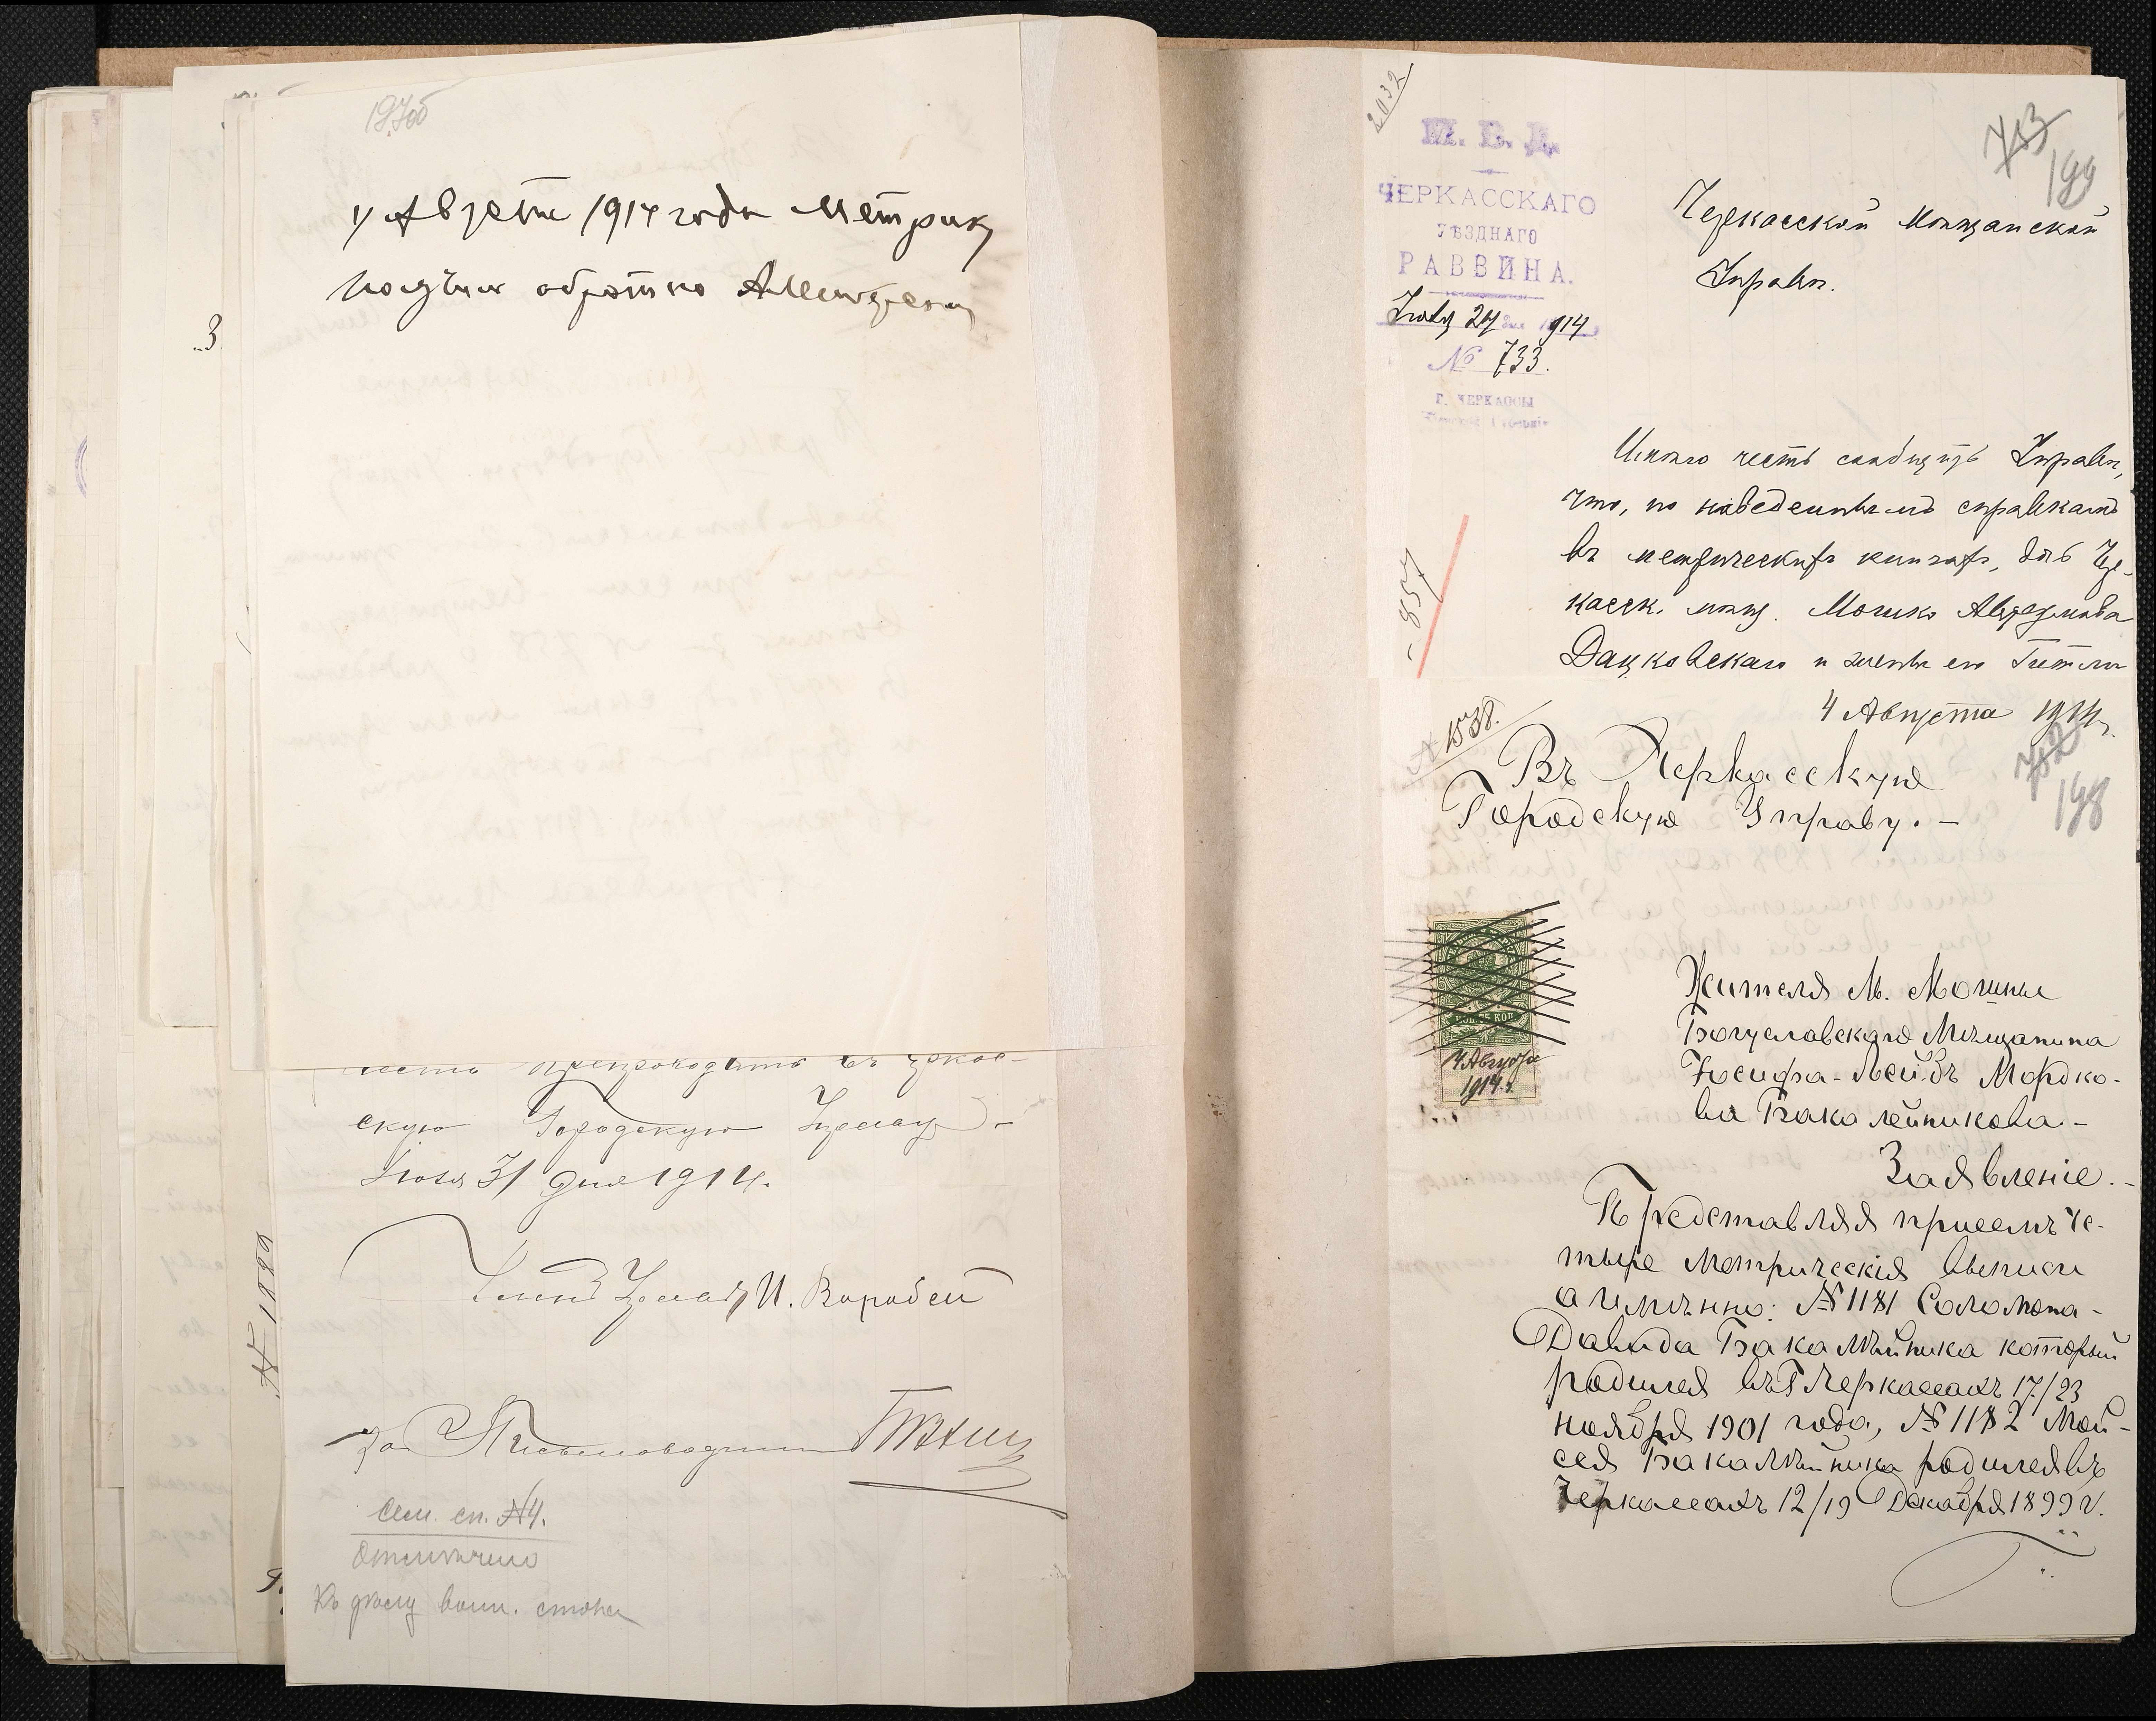 197об
4 Августа 1914 года Метрику
получил обратно
3.
честь препроводить въ Черкас-
скую Городскую Управу. -
Іюля 31 дня 1914.
И. Воробей
За Письмоводителя
Сем. сп. №4.
Отмѣчено
Къ дѣлу воин. стола
2032
М. В. Д.
ЧЕРКАССКАГО
УѢЗДНАГО
РАВВИНА.
Іюля 24 дня 1914
№ 733.
Г. ЧЕРКАССЫ
Кіевской Губерніи
753
199
Черкасской Мѣщанской
Управѣ.
Имѣю честь сообщить Управѣ,
что, по наведеннымъ справкамъ
въ метрическихъ книгахъ, для Чер-
касск. мѣщ. Мошко
Дацковскаго и жены его Гитли
- 857
№ 1538.
4 Августа 1914 г.
752
198
Въ Черкасскую
Городскую Управу. -
15 КОП.
4 Августа
1914 г.
Жителя М. Мошны
Богуславскаго Мѣщанина
Іосифа-Лейбъ Мордко-
ва Бакалейникова -
Заявленіе. -
Представляя присемъ че-
тыре Метрическія выписи
а именно: № 1181 Соломона-
Давида Бакалѣйника который
родился въ Г Черкассахъ 17/23
ноября 1901 года, № 1182 Мои-
сея Бакалѣйника родился въ
Черкассахъ 12/19 Декабря 1899 г.